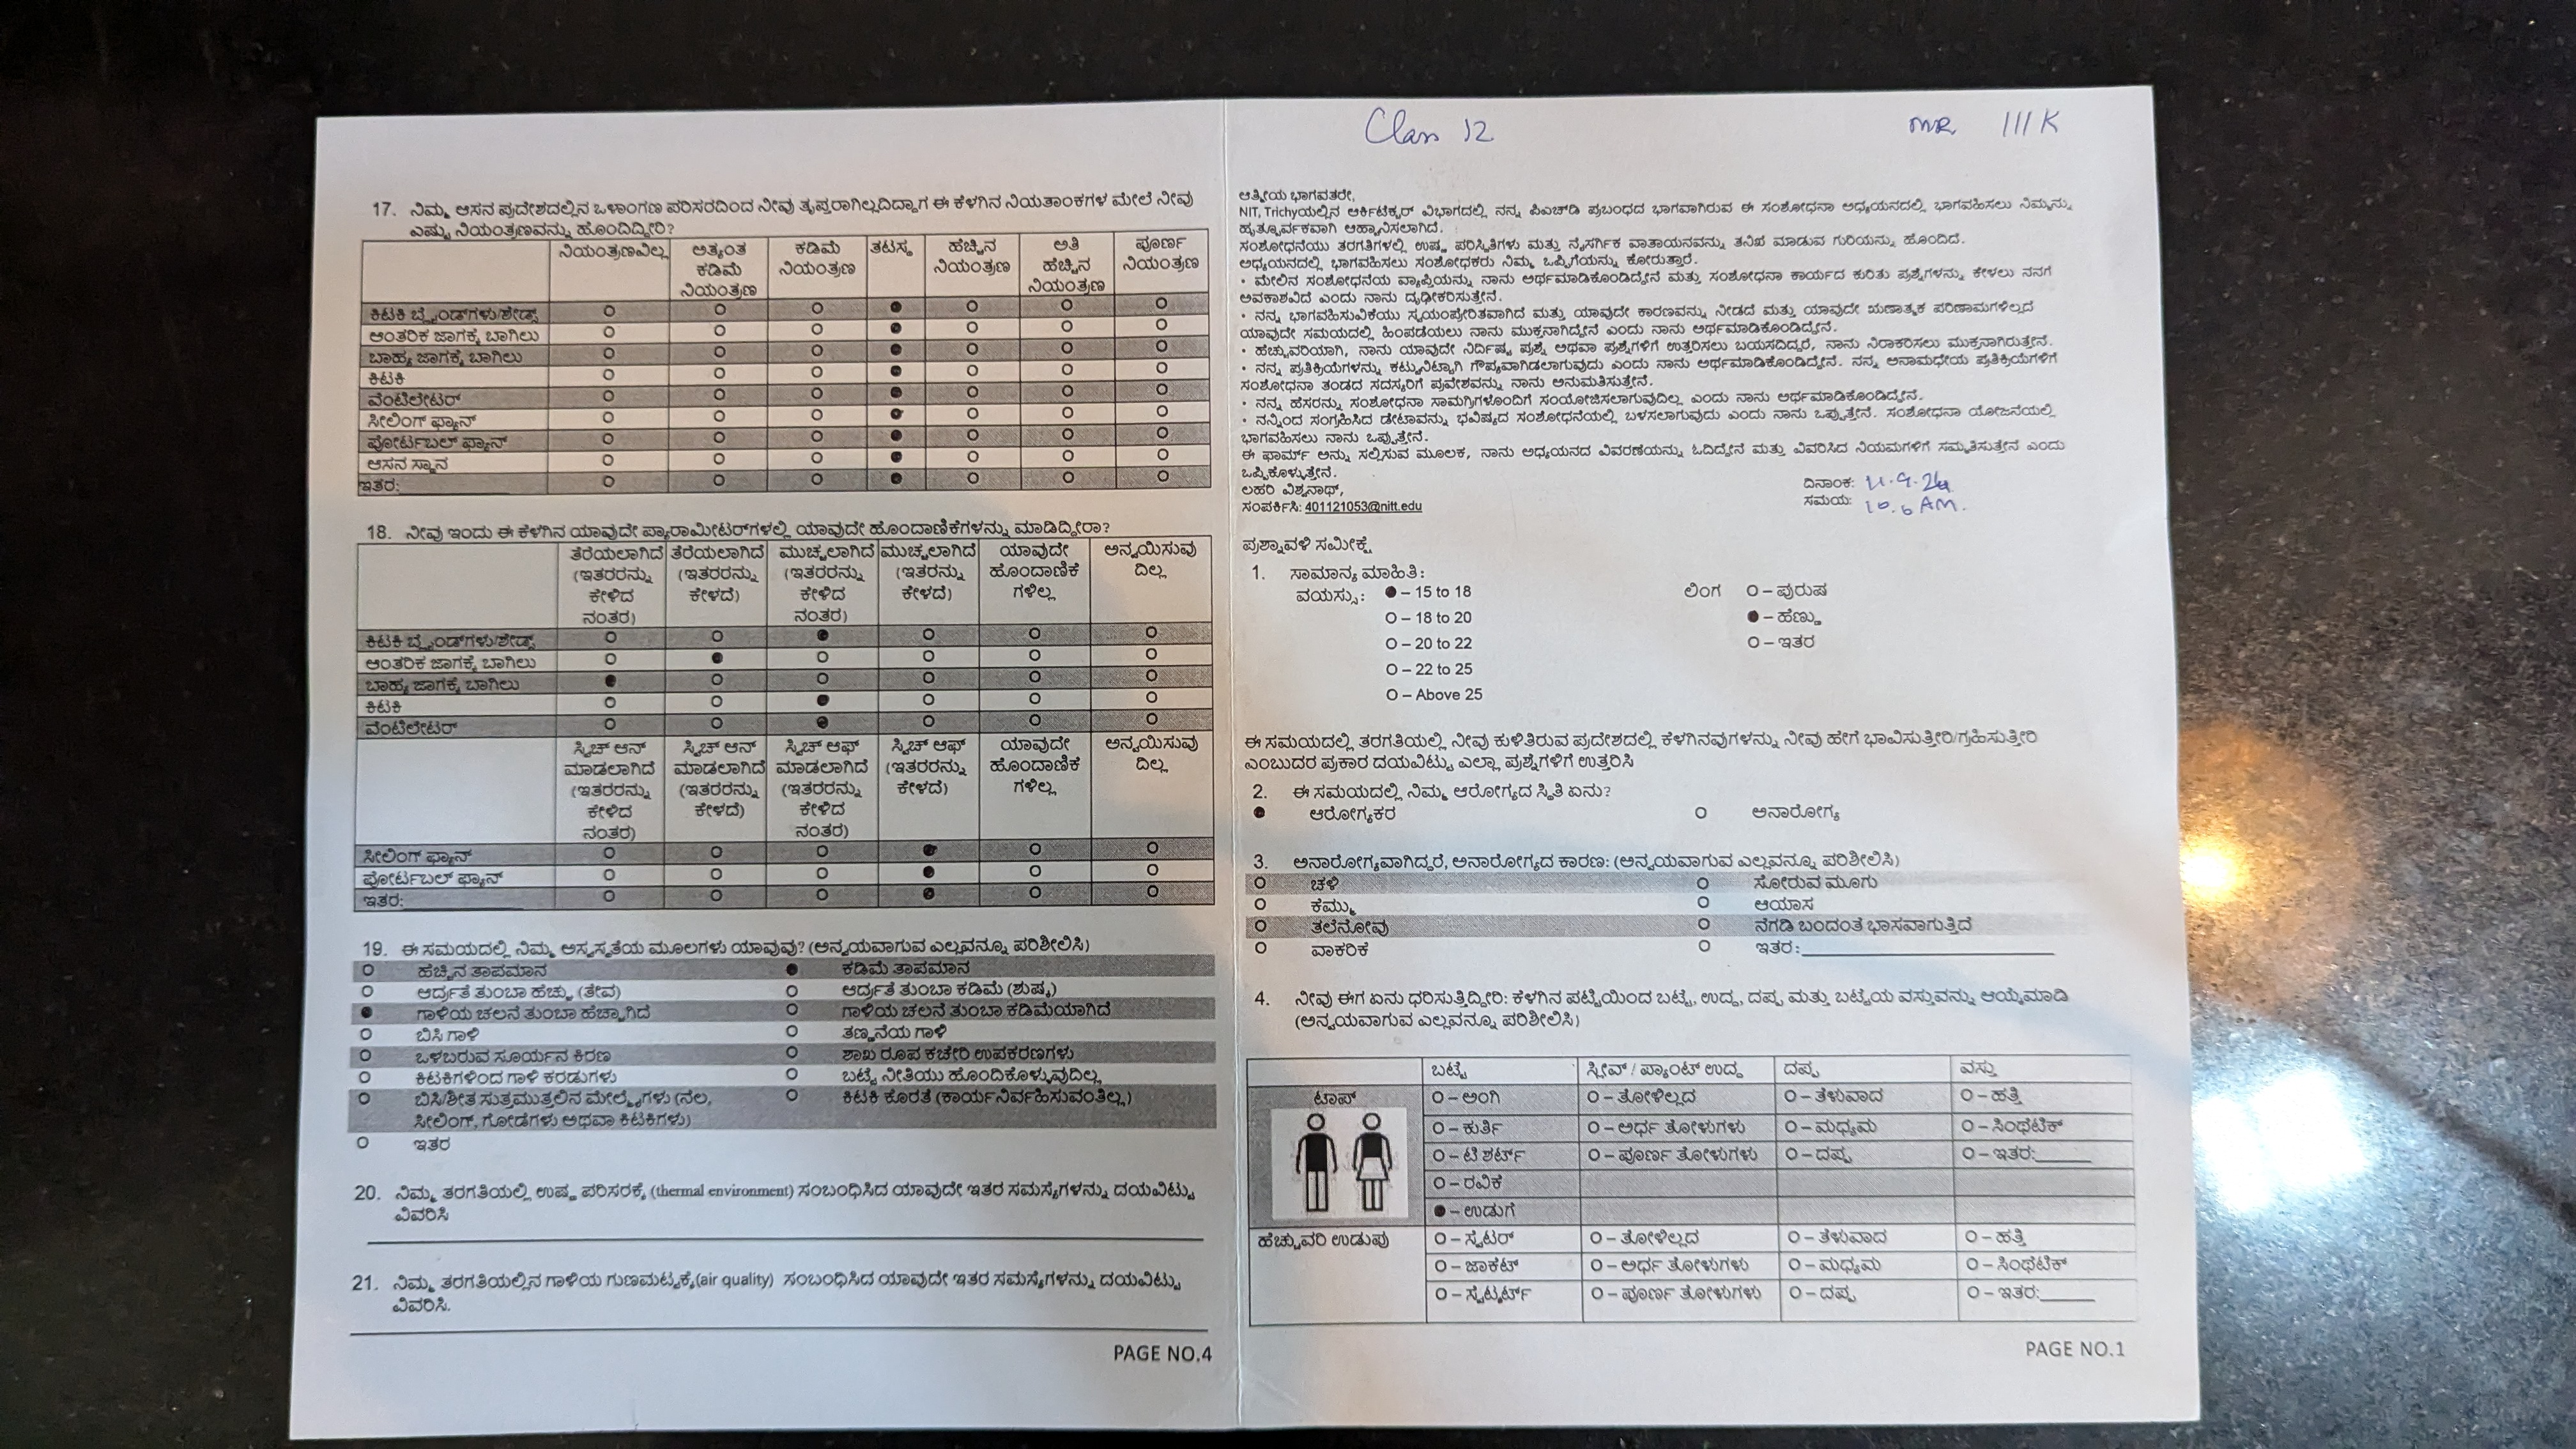 17. ನಿಮ್ಮ ಆಸನ ಪ್ರದೇಶದಲ್ಲಿನ ಒಳಾಂಗಣ ಪರಿಸರದಿಂದ ನೀವು ತೃಪ್ತರಾಗಿಲ್ಲದಿದ್ದಾಗ ಈ ಕೆಳಗಿನ ನಿಯತಾಂಕಗಳ ಮೇಲೆ ನೀವು
ಎಷ್ಟು ನಿಯಂತ್ರಣವನ್ನು ಹೊಂದಿದ್ದೀರಿ?
ನಿಯಂತ್ರಣವಿಲ್ಲ ಅತ್ಯಂತ ಕಡಿಮೆ ನಿಯಂತ್ರಣ ಕಡಿಮೆ ನಿಯಂತ್ರಣ ತಟಸ್ಥ ಹೆಚ್ಚಿನ ನಿಯಂತ್ರಣ ಅತಿ ಹೆಚ್ಚಿನ ನಿಯಂತ್ರಣ ಪೂರ್ಣ ನಿಯಂತ್ರಣ
ಕಿಟಕಿ ಬ್ಲೈಂಡ್‌ಗಳು/ಶೇಡ್ಸ್
ಆಂತರಿಕ ಜಾಗಕ್ಕೆ ಬಾಗಿಲು
ಬಾಹ್ಯ ಜಾಗಕ್ಕೆ ಬಾಗಿಲು
ಕಿಟಕಿ
ವೆಂಟಿಲೇಟರ್
ಸೀಲಿಂಗ್ ಫ್ಯಾನ್
ಪೋರ್ಟಬಲ್ ಫ್ಯಾನ್
ಆಸನ ಸ್ಥಾನ
ಇತರ:
18. ನೀವು ಇಂದು ಈ ಕೆಳಗಿನ ಯಾವುದೇ ಪ್ಯಾರಾಮೀಟರ್‌ಗಳಲ್ಲಿ ಯಾವುದೇ ಹೊಂದಾಣಿಕೆಗಳನ್ನು ಮಾಡಿದ್ದೀರಾ?
ತೆರೆಯಲಾಗಿದೆ (ಇತರರನ್ನು ಕೇಳಿದ ನಂತರ) ತೆರೆಯಲಾಗಿದೆ (ಇತರರನ್ನು ಕೇಳದೆ) ಮುಚ್ಚಲಾಗಿದೆ (ಇತರರನ್ನು ಕೇಳಿದ ನಂತರ) ಮುಚ್ಚಲಾಗಿದೆ (ಇತರರನ್ನು ಕೇಳದೆ) ಯಾವುದೇ ಹೊಂದಾಣಿಕೆ ಗಳಿಲ್ಲ ಅನ್ವಯಿಸುವು ದಿಲ್ಲ
ಕಿಟಕಿ ಬ್ಲೈಂಡ್‌ಗಳು/ಶೇಡ್ಸ್
ಆಂತರಿಕ ಜಾಗಕ್ಕೆ ಬಾಗಿಲು
ಬಾಹ್ಯ ಜಾಗಕ್ಕೆ ಬಾಗಿಲು
ಕಿಟಕಿ
ವೆಂಟಿಲೇಟರ್
ಸ್ವಿಚ್ ಆನ್ ಮಾಡಲಾಗಿದೆ (ಇತರರನ್ನು ಕೇಳಿದ ನಂತರ) ಸ್ವಿಚ್ ಆನ್ ಮಾಡಲಾಗಿದೆ (ಇತರರನ್ನು ಕೇಳದೆ) ಸ್ವಿಚ್ ಆಫ್ ಮಾಡಲಾಗಿದೆ (ಇತರರನ್ನು ಕೇಳಿದ ನಂತರ) ಸ್ವಿಚ್ ಆಫ್ (ಇತರರನ್ನು ಕೇಳದೆ) ಯಾವುದೇ ಹೊಂದಾಣಿಕೆ ಗಳಿಲ್ಲ ಅನ್ವಯಿಸುವು ದಿಲ್ಲ
ಸೀಲಿಂಗ್ ಫ್ಯಾನ್
ಪೋರ್ಟಬಲ್ ಫ್ಯಾನ್
ಇತರ:
19. ಈ ಸಮಯದಲ್ಲಿ ನಿಮ್ಮ ಅಸ್ವಸ್ಥತೆಯ ಮೂಲಗಳು ಯಾವುವು? (ಅನ್ವಯವಾಗುವ ಎಲ್ಲವನ್ನೂ ಪರಿಶೀಲಿಸಿ)
ಹೆಚ್ಚಿನ ತಾಪಮಾನ ಕಡಿಮೆ ತಾಪಮಾನ
ಆರ್ದ್ರತೆ ತುಂಬಾ ಹೆಚ್ಚು (ತೇವ) ಆರ್ದ್ರತೆ ತುಂಬಾ ಕಡಿಮೆ (ಶುಷ್ಕ)
ಗಾಳಿಯ ಚಲನೆ ತುಂಬಾ ಹೆಚ್ಚಾಗಿದೆ ಗಾಳಿಯ ಚಲನೆ ತುಂಬಾ ಕಡಿಮೆಯಾಗಿದೆ
ಬಿಸಿ ಗಾಳಿ ತಣ್ಣನೆಯ ಗಾಳಿ
ಒಳಬರುವ ಸೂರ್ಯನ ಕಿರಣ ಶಾಖ ರೂಪ ಕಚೇರಿ ಉಪಕರಣಗಳು
ಕಿಟಕಿಗಳಿಂದ ಗಾಳಿ ಕರಡುಗಳು ಬಟ್ಟೆ ನೀತಿಯು ಹೊಂದಿಕೊಳ್ಳುವುದಿಲ್ಲ
ಬಿಸಿ/ಶೀತ ಸುತ್ತಮುತ್ತಲಿನ ಮೇಲ್ಮೈಗಳು (ನೆಲ, ಕಿಟಕಿ ಕೊರತೆ (ಕಾರ್ಯನಿರ್ವಹಿಸುವಂತಿಲ್ಲ)
ಸೀಲಿಂಗ್, ಗೋಡೆಗಳು ಅಥವಾ ಕಿಟಕಿಗಳು)
ಇತರ
20. ನಿಮ್ಮ ತರಗತಿಯಲ್ಲಿ ಉಷ್ಣ ಪರಿಸರಕ್ಕೆ (thermal environment) ಸಂಬಂಧಿಸಿದ ಯಾವುದೇ ಇತರ ಸಮಸ್ಯೆಗಳನ್ನು ದಯವಿಟ್ಟು
ವಿವರಿಸಿ
21. ನಿಮ್ಮ ತರಗತಿಯಲ್ಲಿನ ಗಾಳಿಯ ಗುಣಮಟ್ಟಕ್ಕೆ(air quality) ಸಂಬಂಧಿಸಿದ ಯಾವುದೇ ಇತರ ಸಮಸ್ಯೆಗಳನ್ನು ದಯವಿಟ್ಟು
ವಿವರಿಸಿ.
PAGE NO.4
Class 12 111 K
ಆತ್ಮೀಯ ಭಾಗವತರೇ,
NIT, Trichyಯಲ್ಲಿನ ಆರ್ಕಿಟೆಕ್ಚರ್ ವಿಭಾಗದಲ್ಲಿ ನನ್ನ ಪಿಎಚ್‌ಡಿ ಪ್ರಬಂಧದ ಭಾಗವಾಗಿರುವ ಈ ಸಂಶೋಧನಾ ಅಧ್ಯಯನದಲ್ಲಿ ಭಾಗವಹಿಸಲು ನಿಮ್ಮನ್ನು
ಹೃತ್ಪೂರ್ವಕವಾಗಿ ಆಹ್ವಾನಿಸಲಾಗಿದೆ.
ಸಂಶೋಧನೆಯು ತರಗತಿಗಳಲ್ಲಿ ಉಷ್ಣ ಪರಿಸ್ಥಿತಿಗಳು ಮತ್ತು ನೈಸರ್ಗಿಕ ವಾತಾಯನವನ್ನು ತನಿಖೆ ಮಾಡುವ ಗುರಿಯನ್ನು ಹೊಂದಿದೆ.
ಅಧ್ಯಯನದಲ್ಲಿ ಭಾಗವಹಿಸಲು ಸಂಶೋಧಕರು ನಿಮ್ಮ ಒಪ್ಪಿಗೆಯನ್ನು ಕೋರುತ್ತಾರೆ.
• ಮೇಲಿನ ಸಂಶೋಧನೆಯ ವ್ಯಾಪ್ತಿಯನ್ನು ನಾನು ಅರ್ಥಮಾಡಿಕೊಂಡಿದ್ದೇನೆ ಮತ್ತು ಸಂಶೋಧನಾ ಕಾರ್ಯದ ಕುರಿತು ಪ್ರಶ್ನೆಗಳನ್ನು ಕೇಳಲು ನನಗೆ
ಅವಕಾಶವಿದೆ ಎಂದು ನಾನು ದೃಢೀಕರಿಸುತ್ತೇನೆ.
• ನನ್ನ ಭಾಗವಹಿಸುವಿಕೆಯು ಸ್ವಯಂಪ್ರೇರಿತವಾಗಿದೆ ಮತ್ತು ಯಾವುದೇ ಕಾರಣವನ್ನು ನೀಡದೆ ಮತ್ತು ಯಾವುದೇ ಋಣಾತ್ಮಕ ಪರಿಣಾಮಗಳಿಲ್ಲದೆ
ಯಾವುದೇ ಸಮಯದಲ್ಲಿ ಹಿಂಪಡೆಯಲು ನಾನು ಮುಕ್ತನಾಗಿದ್ದೇನೆ ಎಂದು ನಾನು ಅರ್ಥಮಾಡಿಕೊಂಡಿದ್ದೇನೆ.
• ಹೆಚ್ಚುವರಿಯಾಗಿ, ನಾನು ಯಾವುದೇ ನಿರ್ದಿಷ್ಟ ಪ್ರಶ್ನೆ ಅಥವಾ ಪ್ರಶ್ನೆಗಳಿಗೆ ಉತ್ತರಿಸಲು ಬಯಸದಿದ್ದರೆ, ನಾನು ನಿರಾಕರಿಸಲು ಮುಕ್ತನಾಗಿರುತ್ತೇನೆ.
• ನನ್ನ ಪ್ರತಿಕ್ರಿಯೆಗಳನ್ನು ಕಟ್ಟುನಿಟ್ಟಾಗಿ ಗೌಪ್ಯವಾಗಿಡಲಾಗುವುದು ಎಂದು ನಾನು ಅರ್ಥಮಾಡಿಕೊಂಡಿದ್ದೇನೆ. ನನ್ನ ಅನಾಮಧೇಯ ಪ್ರತಿಕ್ರಿಯೆಗಳಿಗೆ
ಸಂಶೋಧನಾ ತಂಡದ ಸದಸ್ಯರಿಗೆ ಪ್ರವೇಶವನ್ನು ನಾನು ಅನುಮತಿಸುತ್ತೇನೆ.
• ನನ್ನ ಹೆಸರನ್ನು ಸಂಶೋಧನಾ ಸಾಮಗ್ರಿಗಳೊಂದಿಗೆ ಸಂಯೋಜಿಸಲಾಗುವುದಿಲ್ಲ ಎಂದು ನಾನು ಅರ್ಥಮಾಡಿಕೊಂಡಿದ್ದೇನೆ.
• ನನ್ನಿಂದ ಸಂಗ್ರಹಿಸಿದ ಡೇಟಾವನ್ನು ಭವಿಷ್ಯದ ಸಂಶೋಧನೆಯಲ್ಲಿ ಬಳಸಲಾಗುವುದು ಎಂದು ನಾನು ಒಪ್ಪುತ್ತೇನೆ. ಸಂಶೋಧನಾ ಯೋಜನೆಯಲ್ಲಿ
ಭಾಗವಹಿಸಲು ನಾನು ಒಪ್ಪುತ್ತೇನೆ.
ಈ ಫಾರ್ಮ್ ಅನ್ನು ಸಲ್ಲಿಸುವ ಮೂಲಕ, ನಾನು ಅಧ್ಯಯನದ ವಿವರಣೆಯನ್ನು ಓದಿದ್ದೇನೆ ಮತ್ತು ವಿವರಿಸಿದ ನಿಯಮಗಳಿಗೆ ಸಮ್ಮತಿಸುತ್ತೇನೆ ಎಂದು
ಒಪ್ಪಿಕೊಳ್ಳುತ್ತೇನೆ.
ಲಹರಿ ವಿಶ್ವನಾಥ್,
ಸಂಪರ್ಕಿಸಿ: 401121053@nitt.edu
ದಿನಾಂಕ: 11.9.24
ಸಮಯ: 10.6 AM.
ಪ್ರಶ್ನಾವಳಿ ಸಮೀಕ್ಷೆ
1. ಸಾಮಾನ್ಯ ಮಾಹಿತಿ:
ವಯಸ್ಸು: – 15 to 18 ಲಿಂಗ O – ಪುರುಷ
O – 18 to 20 – ಹೆಣ್ಣು
O – 20 to 22 O – ಇತರ
O – 22 to 25
O – Above 25
ಈ ಸಮಯದಲ್ಲಿ ತರಗತಿಯಲ್ಲಿ ನೀವು ಕುಳಿತಿರುವ ಪ್ರದೇಶದಲ್ಲಿ ಕೆಳಗಿನವುಗಳನ್ನು ನೀವು ಹೇಗೆ ಭಾವಿಸುತ್ತೀರಿ/ಗ್ರಹಿಸುತ್ತೀರಿ
ಎಂಬುದರ ಪ್ರಕಾರ ದಯವಿಟ್ಟು ಎಲ್ಲಾ ಪ್ರಶ್ನೆಗಳಿಗೆ ಉತ್ತರಿಸಿ
2. ಈ ಸಮಯದಲ್ಲಿ ನಿಮ್ಮ ಆರೋಗ್ಯದ ಸ್ಥಿತಿ ಏನು?
ಆರೋಗ್ಯಕರ O ಅನಾರೋಗ್ಯ
3. ಅನಾರೋಗ್ಯವಾಗಿದ್ದರೆ, ಅನಾರೋಗ್ಯದ ಕಾರಣ: (ಅನ್ವಯವಾಗುವ ಎಲ್ಲವನ್ನೂ ಪರಿಶೀಲಿಸಿ)
O ಚಳಿ O ಸೋರುವ ಮೂಗು
O ಕೆಮ್ಮು O ಆಯಾಸ
O ತಲೆನೋವು O ನೆಗಡಿ ಬಂದಂತೆ ಭಾಸವಾಗುತ್ತಿದೆ
O ವಾಕರಿಕೆ O ಇತರ:
4. ನೀವು ಈಗ ಏನು ಧರಿಸುತ್ತಿದ್ದೀರಿ: ಕೆಳಗಿನ ಪಟ್ಟಿಯಿಂದ ಬಟ್ಟೆ, ಉದ್ದ, ದಪ್ಪ ಮತ್ತು ಬಟ್ಟೆಯ ವಸ್ತುವನ್ನು ಆಯ್ಕೆಮಾಡಿ
(ಅನ್ವಯವಾಗುವ ಎಲ್ಲವನ್ನೂ ಪರಿಶೀಲಿಸಿ)
ಬಟ್ಟೆ ಸ್ಲೀವ್ / ಪ್ಯಾಂಟ್ ಉದ್ದ ದಪ್ಪ ವಸ್ತು
ಟಾಪ್ O – ಅಂಗಿ O – ತೋಳಿಲ್ಲದ O – ತೆಳುವಾದ O – ಹತ್ತಿ
O – ಕುರ್ತಿ O – ಅರ್ಧ ತೋಳುಗಳು O – ಮಧ್ಯಮ O – ಸಿಂಥೆಟಿಕ್
O – ಟಿ ಶರ್ಟ್ O – ಪೂರ್ಣ ತೋಳುಗಳು O – ದಪ್ಪ O – ಇತರ:
O – ರವಿಕೆ
– ಉಡುಗೆ
ಹೆಚ್ಚುವರಿ ಉಡುಪು O – ಸ್ವೆಟರ್ O – ತೋಳಿಲ್ಲದ O – ತೆಳುವಾದ O – ಹತ್ತಿ
O – ಜಾಕೆಟ್ O – ಅರ್ಧ ತೋಳುಗಳು O – ಮಧ್ಯಮ O – ಸಿಂಥೆಟಿಕ್
O – ಸ್ವೆಟ್ಶರ್ಟ್ O – ಪೂರ್ಣ ತೋಳುಗಳು O – ದಪ್ಪ O – ಇತರ:
PAGE NO.1